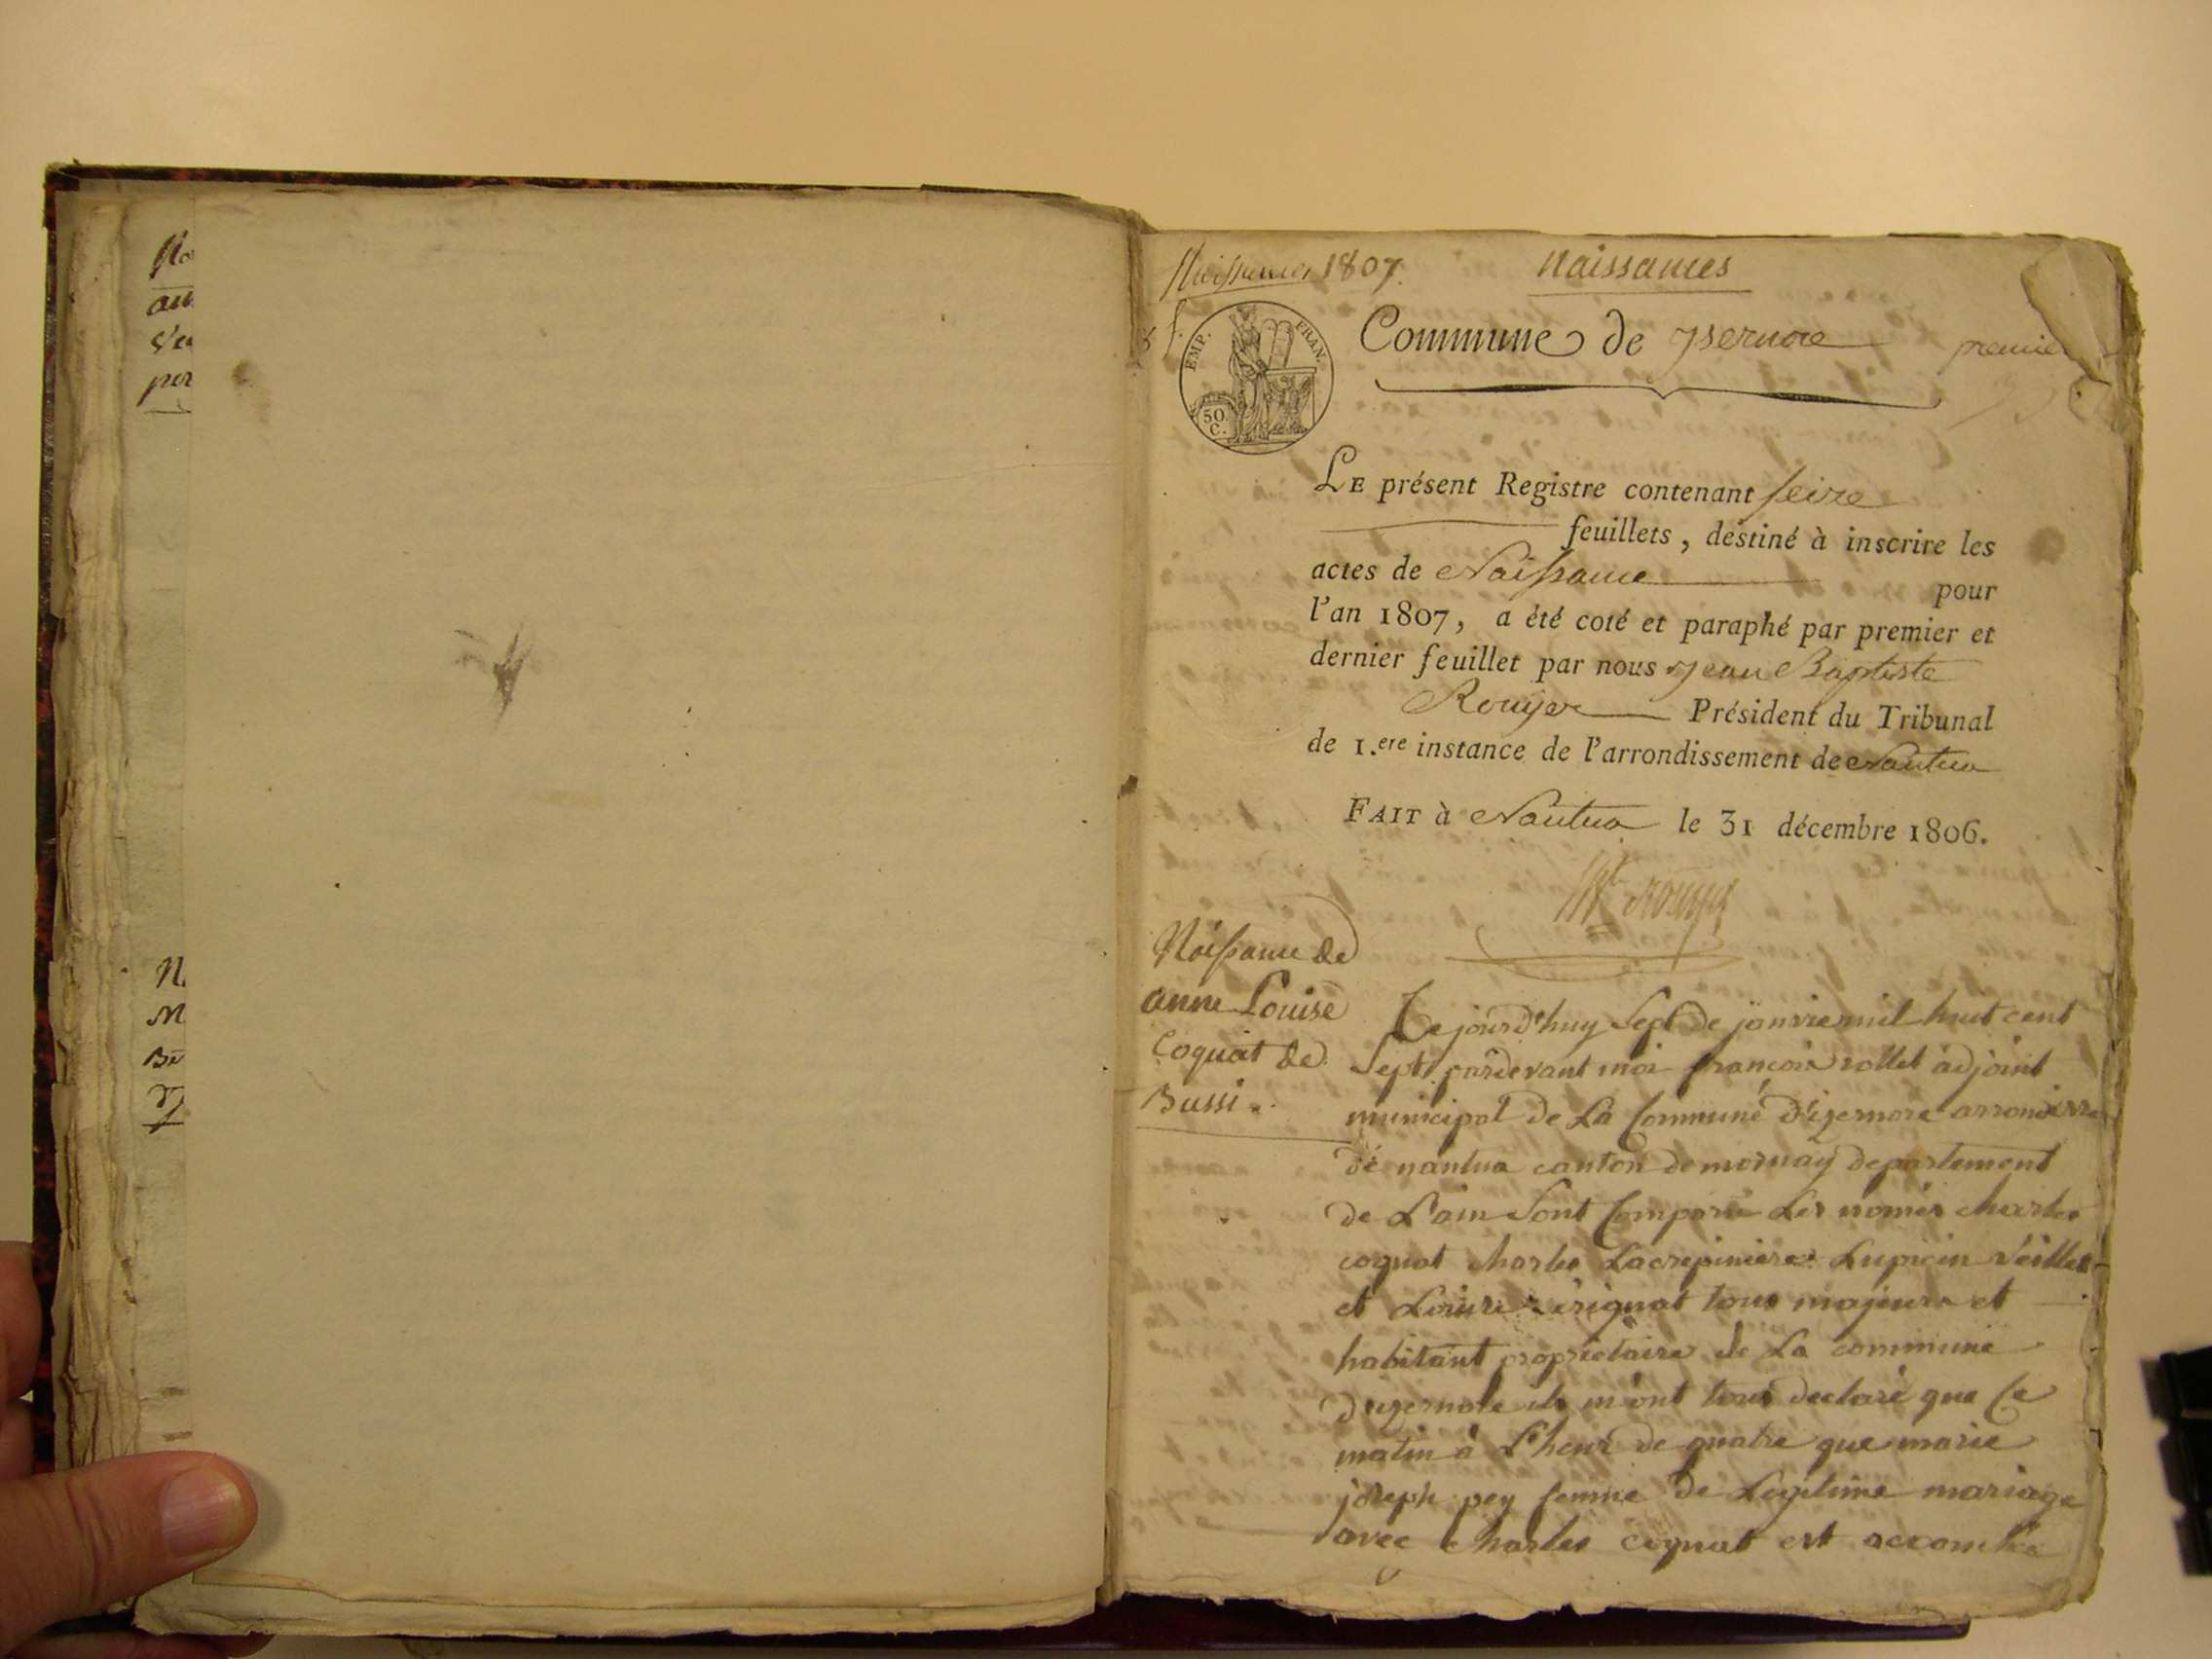 No
au
per
N.
M
Be
Naissances 1807.
Naissances
EMP. FRAN.
50 C.
Commune de ysernore
premier
LE présent Registre contenant seize
feuillets, destiné à inscrire les
actes de Naissance pour
l'an 1807, a été coté et paraphé par premier et
dernier feuillet par nous Jean Baptiste
Rouyer Président du Tribunal
de 1.ere instance de l'arrondissement de Nantua
FAIT à Nantua le 31 décembre 1806.
Rouyer
Naissance de
anne Louise
Coquat de
Bussi.
Ce jourd'huy Sept de janvie mil huit cent
Sept pardevant moi françois rollet adjoint
municipal de La Commune d'izernore
de nantua canton de mornay departement
de L'ain Sont Comparu Les només charles
coquat charles Lacrepiniere Lupicin Veillet
et Louis irignat tous majeurs et
habitant propriétaire de La commune
d'izernore ils m'ont tous declaré que Ce
matin à L'heur de quatre que marie
joseph pey femme de Legitime mariage
avec Charles coquat est accouchée